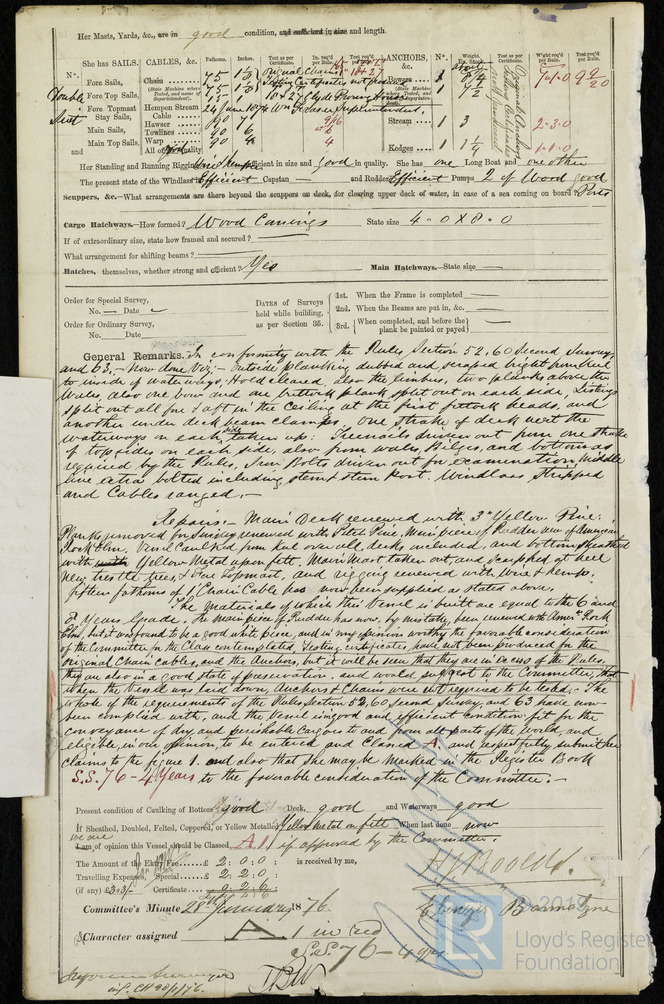 Her Masts, Yards, &c., are in good condition, and sufficient in size and length.
She has SAILS. CABLES, &c. Fathoms. Inches. Test as per Certificate. In. req'd per Rule. Test req'd per Rule. ANCHORS, &c. Nº. Weight. Ex. Stock Test as per Certificate. W'ght req'd per Rule. Test req'd per Rule.
Nº. Fore Sails, Chain 75 1 1/8 Original Chains Bowers
Double Fore Top Sails, (State Machine where Tested, and name of Superintendent). 75 1 1/8 Testing Certificates not produced
Suit Fore Topmast Stay Sails, Hempen Stream Cable
Main Sails, Hawser 90 7 Stream 1 3 2.3.0
Towlines 90 6
Main Top Sails, Warp 90 4 4 Kedges 1
and All of good quality
Her Standing and Running Rigging Wire & Hemp sufficient in size and good in quality. She has one Long Boat and one other
The present state of the Windlass is Efficient Capstan — and Rudder Efficient Pumps 2 of Wood good
Scuppers, &c.—What arrangements are there beyond the scuppers on deck, for clearing upper deck of water, in case of a sea coming on board? Ports
Cargo Hatchways.—How formed? Wood Coamings State size 4-0 X 8-0
If of extraordinary size, state how framed and secured?
What arrangement for shifting beams?
Hatches, themselves, whether strong and efficient? Yes Main Hatchways.—State size —
Order for Special Survey, No. — Date
Order for Ordinary Survey, No. Date
DATES of Surveys held while building, as per Section 35.
1st. When the Frame is completed
2nd. When the Beams are put in, &c.
3rd. When completed, and before the plank be painted or payed
General Remarks. In conformity with the Rules Section 52, 60 Second Survey
and 63, - Now done Viz, - Outside planking dubbed and scraped bright from keel
to inside of waterways, Hold cleared, also the limbers, two planks above the
Wales, also one bow and one buttock plank split out on each side, Listings
split out all fore & aft in the Ceiling at the first futtock heads, and
another under deck beam clamps, one strake of deck next the
waterways on each side taken up: Treenails driven out from one strake
of topsides on each side, also from wales, Bilges, and bottom as
required by the Rules, Iron Bolts driven out for examination, Middle
line extra bolted including stem & stern Post. Windlass stripped
and Cables ranged. -
Repairs:- Main Deck renewed with 3" Yellow Pine.
Planks removed for Survey renewed with Pitch Pine, Main piece of Rudder new of American
Rock Elm, Vessel Caulked from keel over all, decks included, and bottom sheathed
with Yellow Metal upon felt. Main Mast taken out, and scarphed at heel
New trestle trees, & Fore topmast, and rigging renewed with Wire & Hemp.
fifteen fathoms of Chain Cable has now been supplied as stated above.
The materials of which this Vessel is built are equal to the 6 and
8 Years Grade. The main piece of Rudder has now, by mistake, been renewed with Amern Rock
Elm, but it was found to be a good white piece, and in my opinion worthy the favorable consideration
of the Committee, for the Class contemplated. Testing certificates, have not been produced for the
original Chain cables, and the Anchors, but it will be seen that they are in excess of the Rules,
they are also in a good state of preservation, and would suggest to the Committee, that
when the Vessel was laid down, Anchors & Chains were not required to be tested. - The
whole of the requirements of the Rules Section 52, 60, second Survey, and 63 have now
been complied with, and the Vessel is in good and efficient condition fit for the
conveyance of dry and perishable cargoes to and from all parts of the world, and
eligible, in our opinion, to be entered and Classed A and respectfully submit her
claims to the figure 1. and also that She may be marked in the Register Book
S.S. 76 - 4 Years to the favorable consideration of the Committee. -
Present condition of Caulking of Bottom, good Deck, good and Waterways good
If Sheathed, Doubled, Felted, Coppered, or Yellow Metalled Yellow Metal on felt When last done now
we are
I am of opinion this Vessel should be Classed A1 if approved by the Committee.
The Amount of the Entry Fee £ 2:0:0: is received by me,
Travelling Expenses, Special £ 2:2:0:
(if any) £3:3/- Certificate 0:2:6:
Committee's Minute 28th January 1876.
Ebenezer Bannatyne
Character assigned A 1 in red
S.S. 76 - 4 yrs
© 2019
LR
Lloyd's Register
Foundation